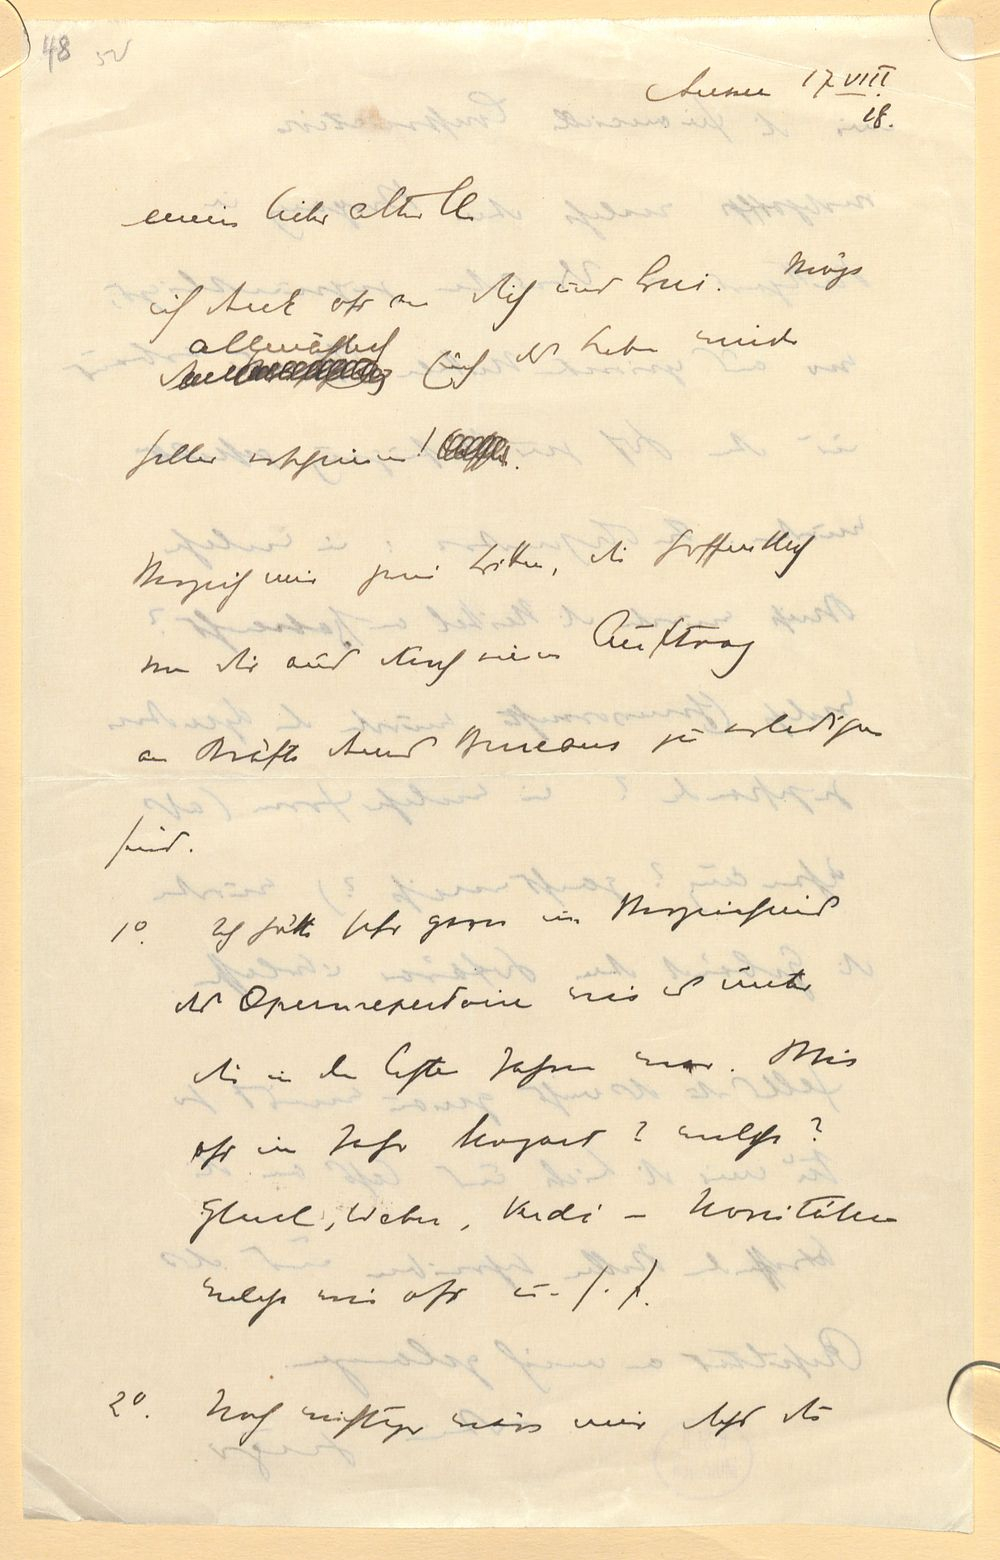 48
Aussee 17 VIII
18.
mein lieber alter
ich denke oft an dich und Eure. Möge
allmählich
euch das Leben wieder
heller erscheinen!
Verzeih mir zwei Bitten, die hoffentlich
von dir aus durch einen Auftrag
an Kräfte deines Bureaus zu erledigen
sind.
1º. Ich hätte sehr gerne ein Verzeichnis
des Opernrepertoire wie es unter
dir in den letzten Jahren war. Wie
oft im Jahr Mozart? welche?
Gluck, Weber, Verdi – Novitäten
welche wie oft u. s. f.
2º. Noch wichtiger wäre mir dass du